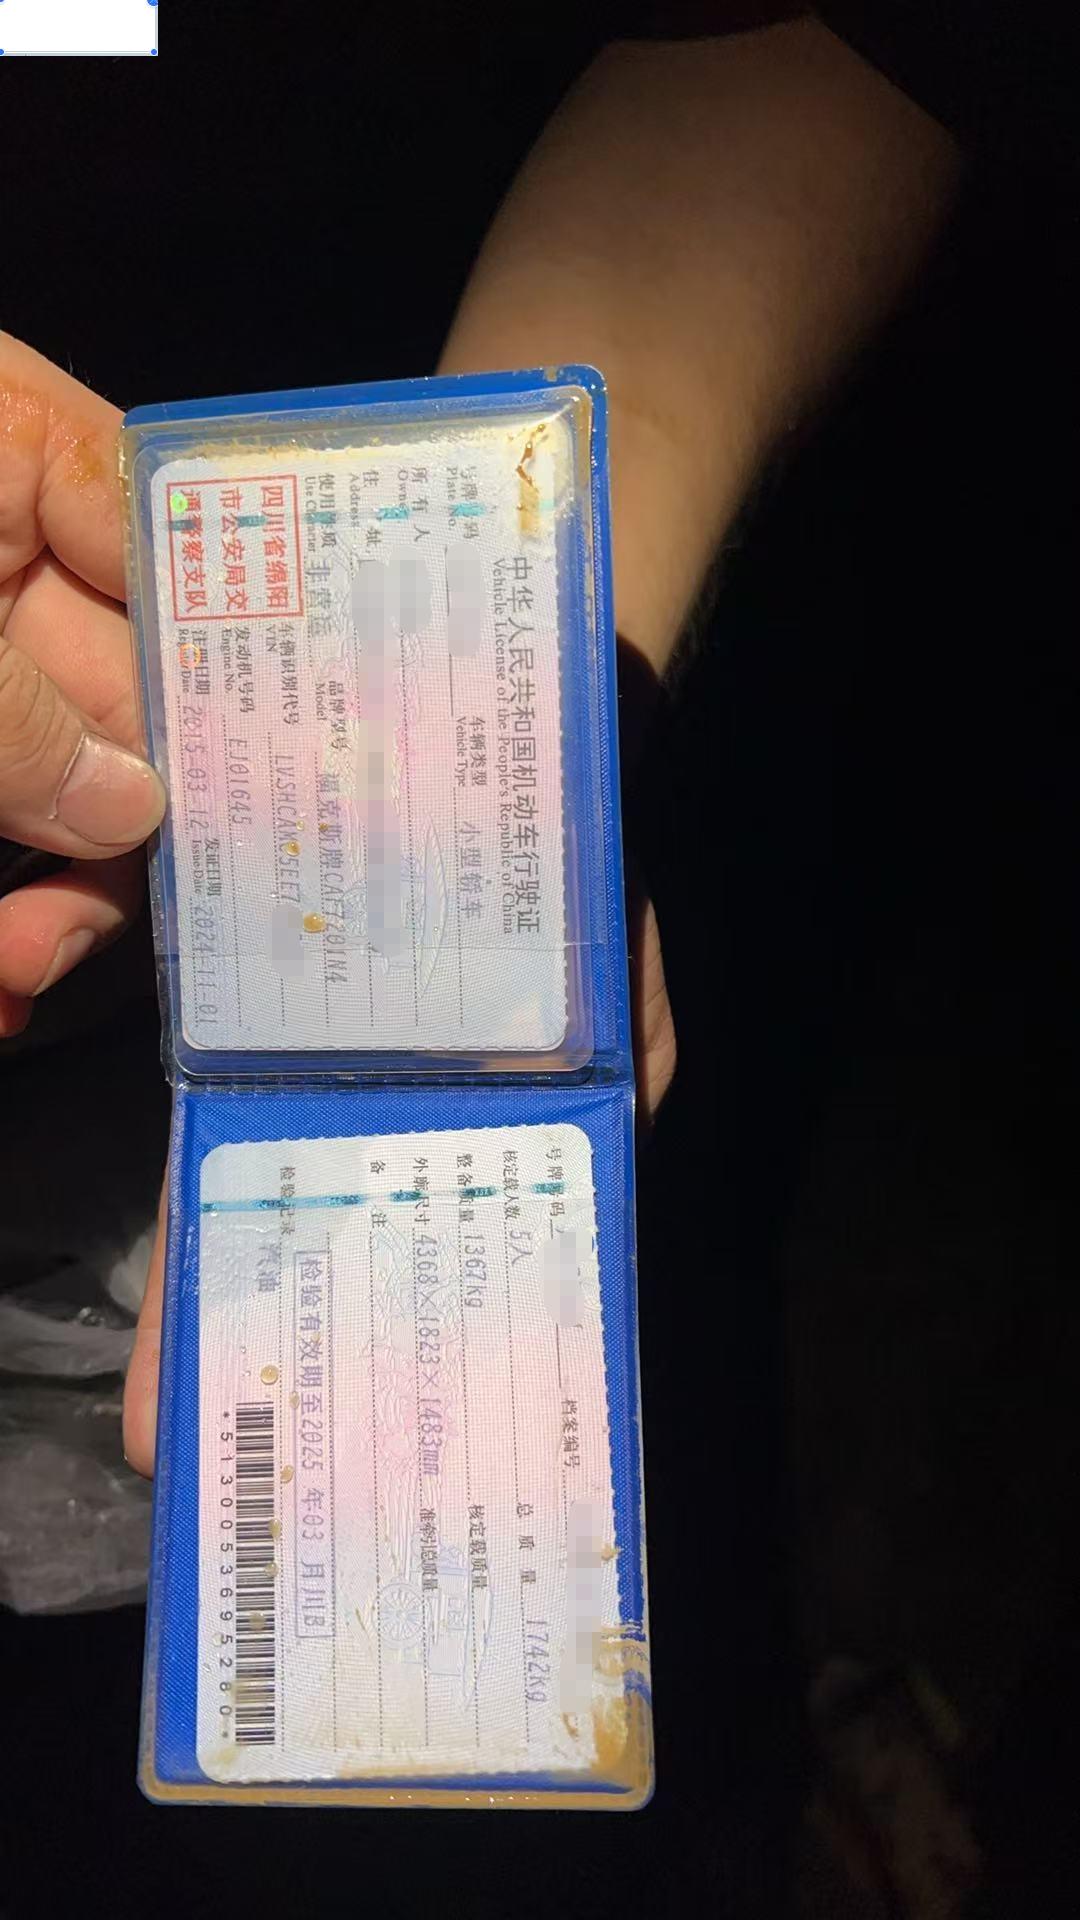 中华人民共和国机动车行驶证
Vehicle License of the People's Republic of China
号牌 码
Plate No.
车辆类型
Vehicle Type
小型轿车
所有人
Owner
住 址
Address
使用 质
Use Character
非营运
品牌型号
Model
福克斯牌CAF7201N4
四川省绵阳
市公安局交
通警察支队
车辆识别代号
VIN
LVSHCAMC5EE7
发动机号码
Engine No.
EJ01645
注册日期
Register Date
2015-03-12
发证日期
Issue Date
2024-11-01
号牌 码
档案编号
核定载人数
5人
总质量
1742kg
整备质量
1367kg
核定载质量
外廓尺寸
4368×1823×1483mm
准牵引总质量
备注
检验有效期至2025 年03 月
检验记录
汽油
*5130053695280*